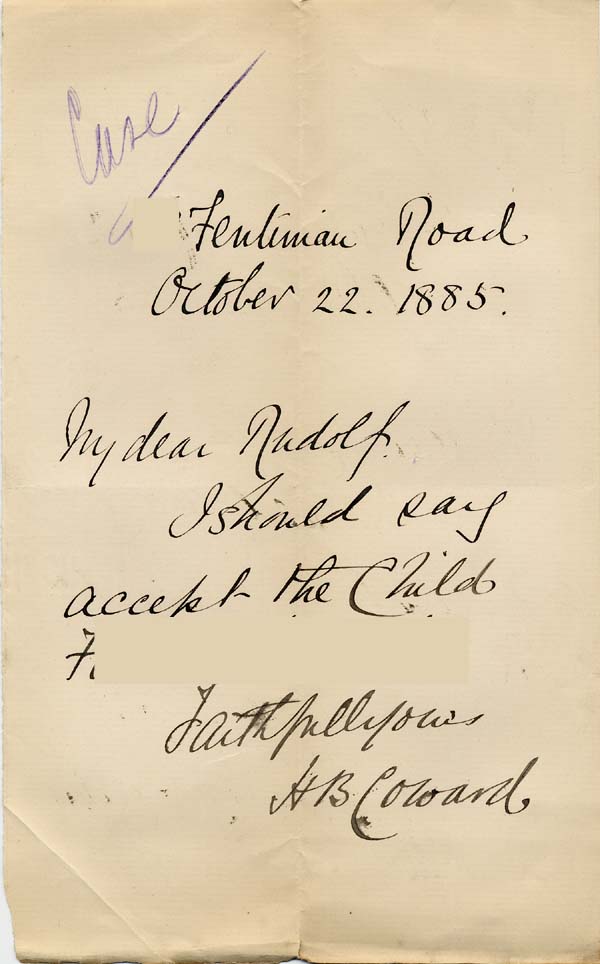 Case
Fentiman Road
October 22. 1885.
My dear Rudolf.
I should say
accept the Child
F.
Faithfully yours
H B Coward